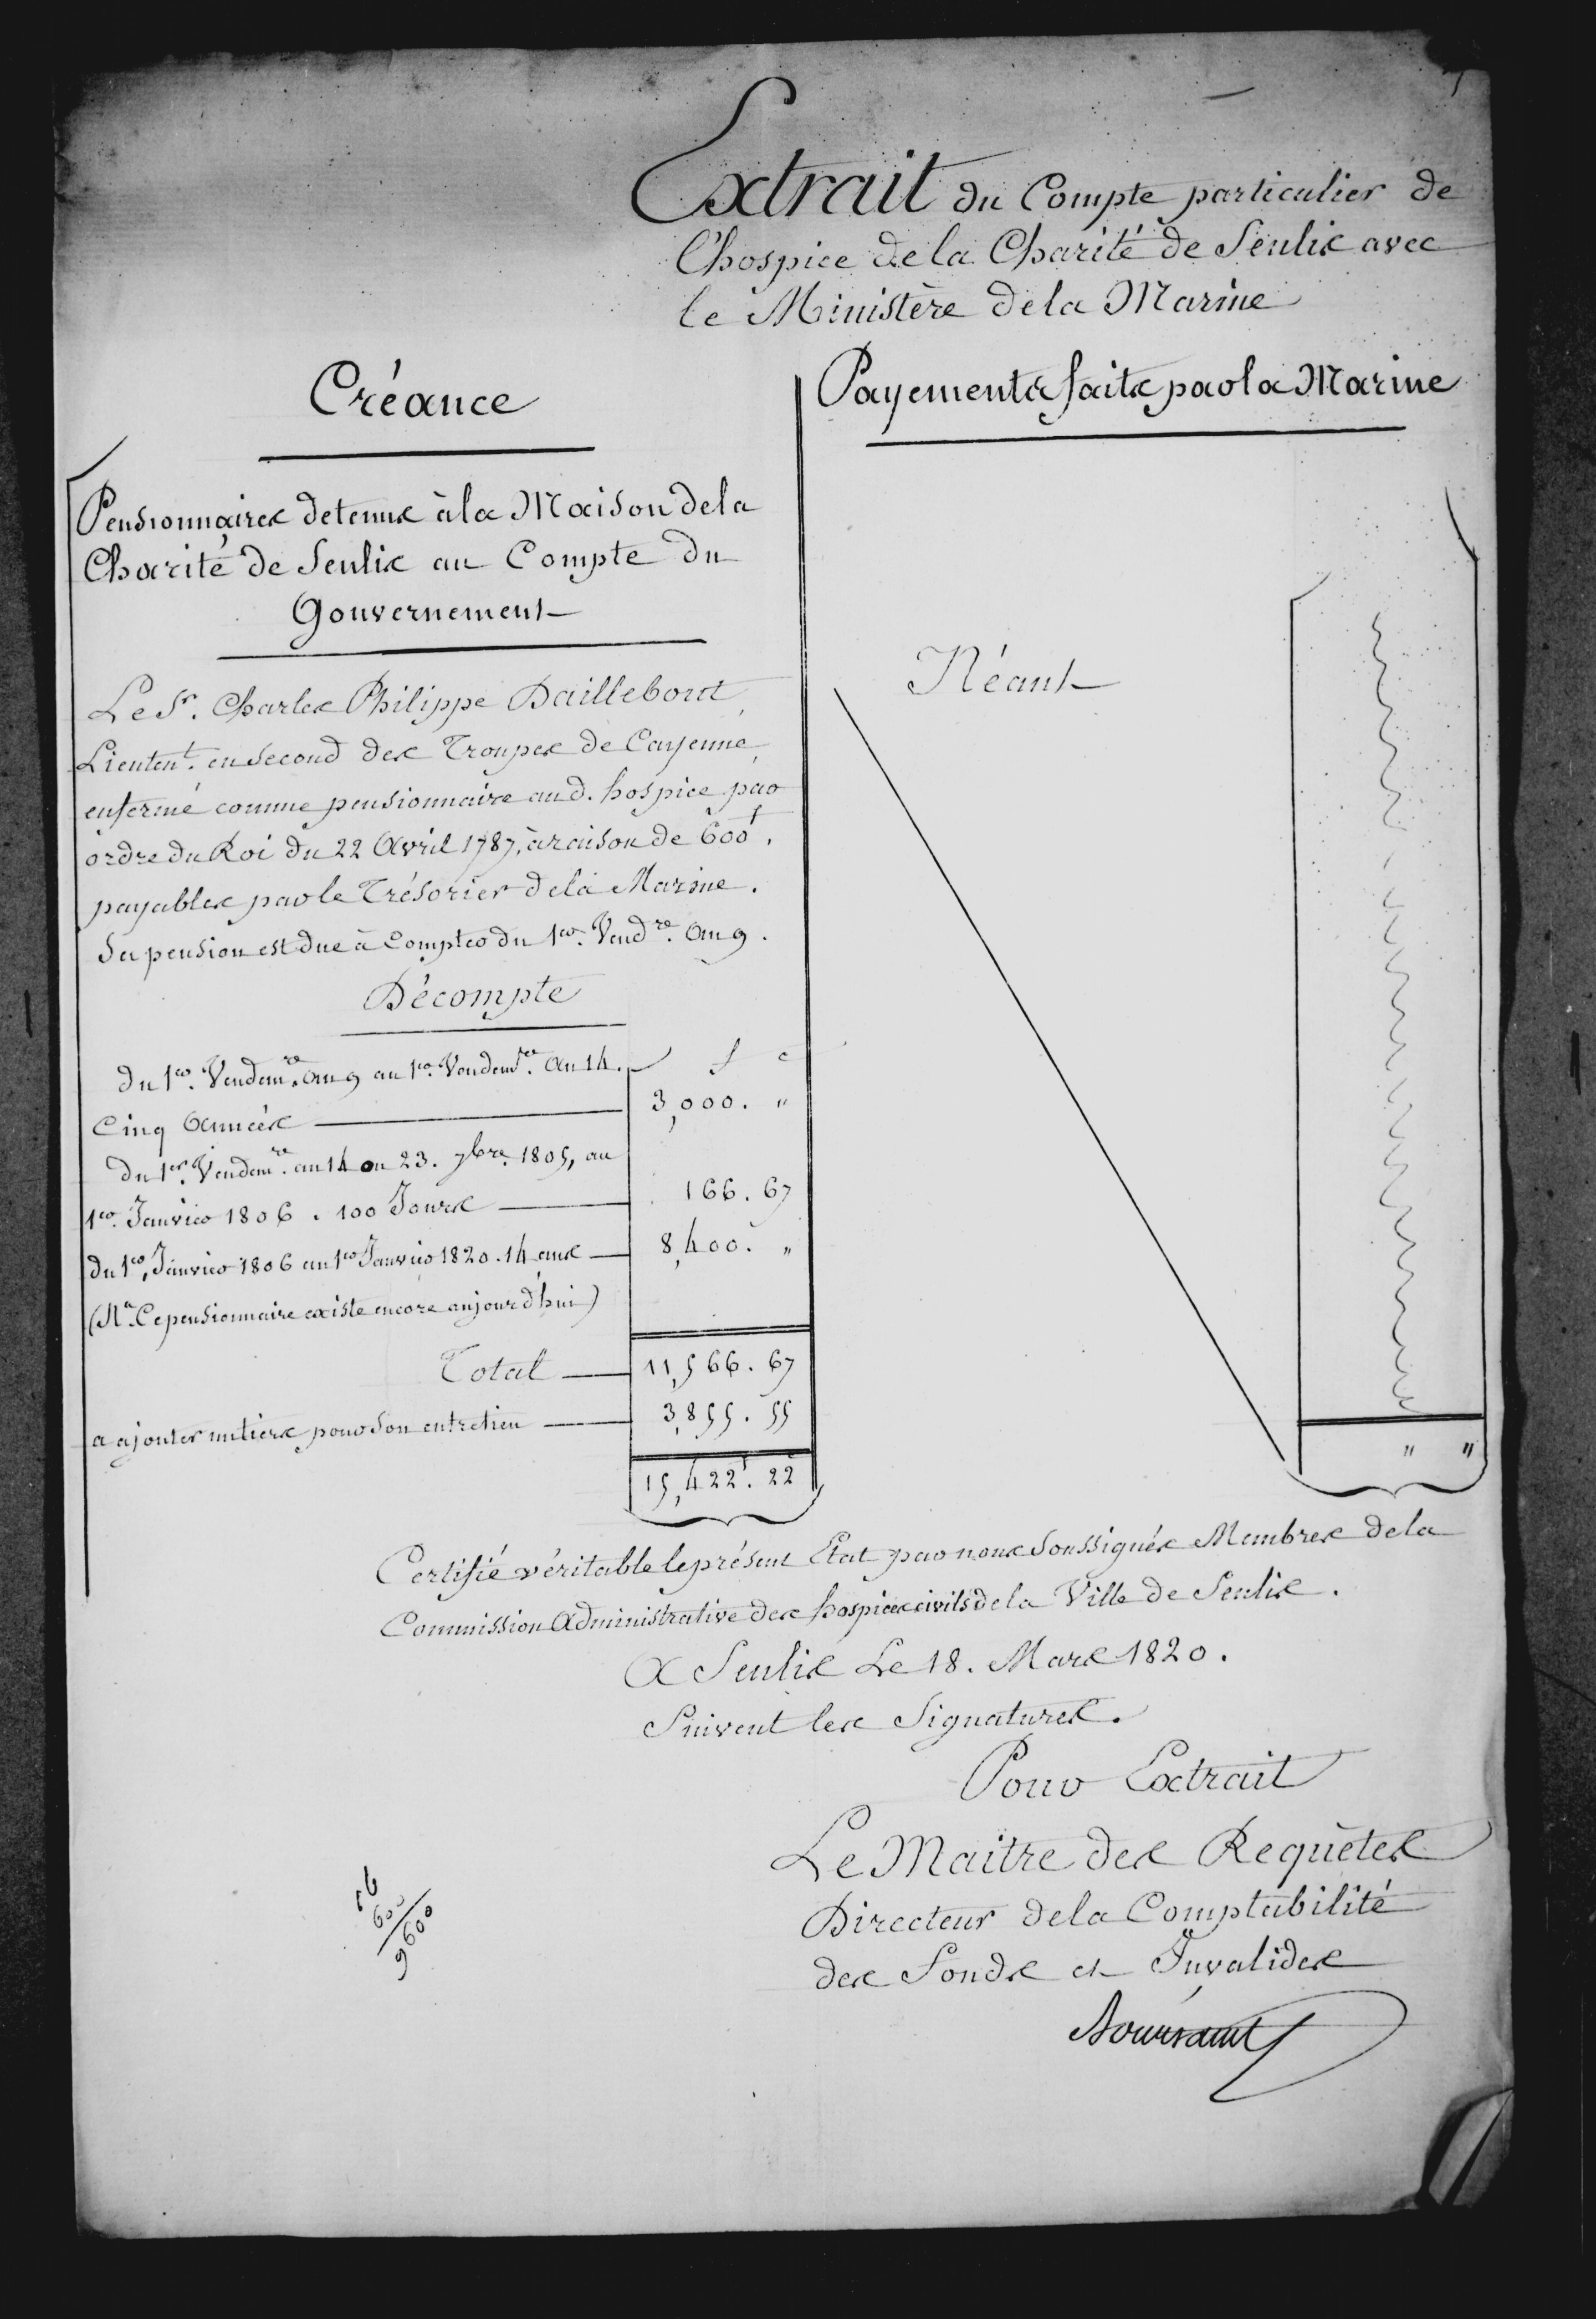 Extrait du Compte particulier de
l'hospice de la Charité de Senlis avec
le Ministère de la Marine
Créance
Pensionnaires detenus à la Maison de la
Charité de Senlis au Compte du
Gouvernement
Le Sr. Charles Philippe Daillebout,
Lieutent. en Second des Troupes de Cayenne,
enfermé comme pensionnaire aud. hospice par
ordre du Roi du 22 Avril 1787, à raison de 600₶.
payables par le Trésorier de la Marine.
Sa pension est due à Compter du 1er. Vendre. an 9.
Décompte
f c
du 1er. Vendemre. an 9 au 1er. Vendemre. an 14.
Cinq Années 3,000. "
du 1er. Vendemre. an 14 ou 23. 7bre. 1805, au
1er. Janvier 1806. 100 Jours 166. 67
du 1er. Janvier 1806 au 1er Janvier 1820. 14 ans 8,400. "
(Na. Ce pensionnaire existe encore aujourd'hui)
Total 11,566. 67
a ajouter un tiers pour son entretien 3,855. 55
15,422f. 22c
Payements faits par la Marine
Néant
" "
Certifié véritable le présent Etat par nous Soussignés Membres de la
Commission Administrative des hospices civils de la Ville de Senlis.
A Senlis Le 18. Mars 1820.
Suivent les Signatures.
Pour Extrait
Le Maitre des Requêtes
Directeur de la Comptabilité
des Fonds et Invalides
Boursaint
16
600
9600